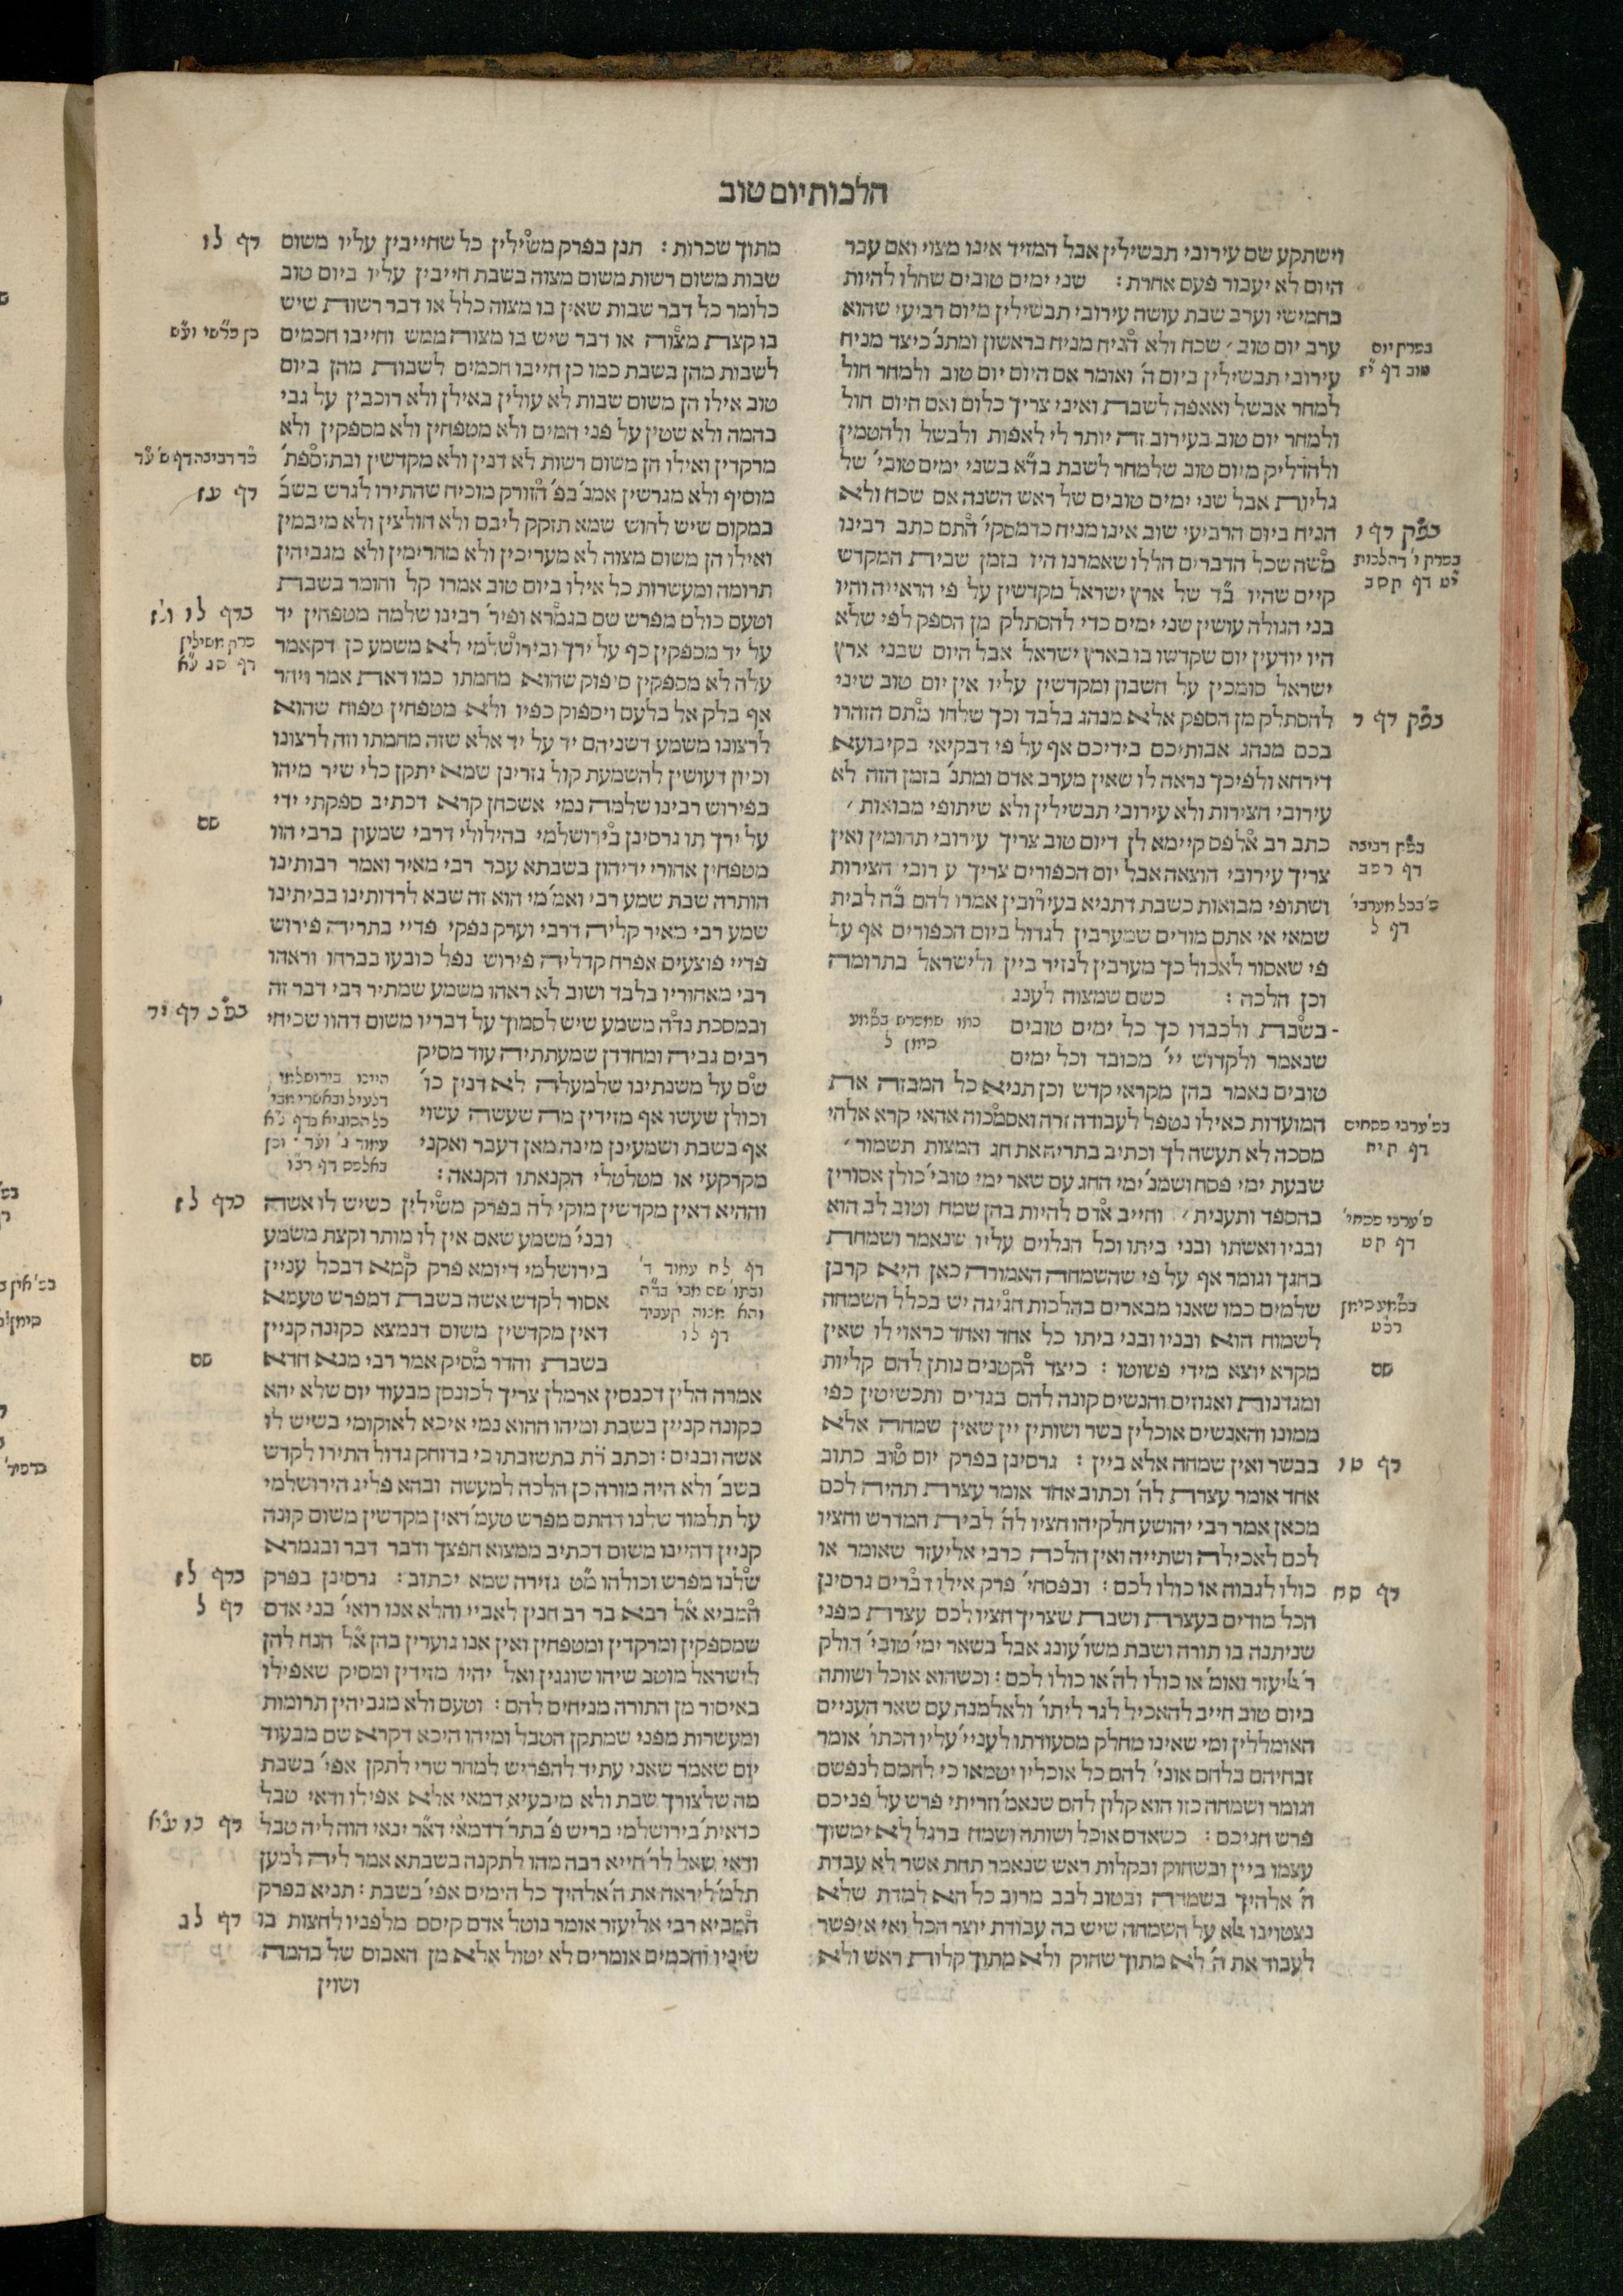 הלכות יום טוב
וישתקע שם עירובי תבשילין אבל המזיד אינו מצוי ואם עבר
היום לא יעבור פעם אחרת : שני ימים טובים שחלו להיות
בחמישי וערב שבת עושה עירובי תבשילין מיום רביעי שהוא
ערב יום טוב ׳ שכח ולא הניח מניח בראשון ומתנ׳ כיצד מניח
עירובי תבשילין ביום ה׳ ואומר אם היום יום טוב ולמחר חול
למחר אבשל ואאפה לשבת ואיני צריך כלום ואם היום חול
ולמחר יום טוב בעירוב זה יותר לי לאפות ולבשל ולהטמין
ולהדליק מיום טוב שלמחר לשבת בד״א בשני ימים טובי׳ של
גליות אבל שני ימים טובים של ראש השנה אם שכח ולא
הניח ביום הרביעי שוב אינו מניח כדמסקי׳ התם כתב רבינו
משה שכל הדברים הללו שאמרנו היו בזמן שבית המקדש
קיים שהיו ב״ד של ארץ ישראל מקדשין על פי הראייה והיו
בני הגולה עושין שני ימים כדי להסתלק מן הספק לפי שלא
היו יודעין יום שקדשו בו בארץ ישראל אבל היום שבני ארץ
ישראל סומכין על חשבון ומקדשין עליו אין יום טוב שיני
להסתלק מן הספק אלא מנהג בלבד וכך שלחו מתם הזהרו
בכם מנהג אבותיכם בידיכם אף על פי דבקיאי בקיבועא
דירחא ולפיכך נראה לו שאין מערב אדם ומתנ׳ בזמן הזה לא
עירובי חצירות ולא עירובי תבשילין ולא שיתופי מבואות ׳
כתב רב אלפס קיימא לן דיום טוב צריך עירובי תחומין ואין
צריך עירובי הוצאה אבל יום הכפורים צריך ע רובי חצירות
ושתופי מבואות כשבת דתניא בעירובין אמרו להם ב״ה לבית
שמאי אי אתם מודים שמערבין לגדול ביום הכפורים אף על
פי שאסור לאכול כך מערבין לנזיר ביין ולישראל בתרומה
וכן הלכה : כשם שמצוה לענג
בשבת ולכבדו כך כל ימים טובים
שנאמר ולקדוש יי׳ מכובד וכל ימים
טובים נאמר בהן מקראי קדש וכן תניא כל המבזה את
המועדות כאילו נטפל לעבודה זרה ואסמכוה אהאי קרא אלהי
מסכה לא תעשה לך וכתיב בתריה את חג המצות תשמור ׳
שבעת ימי פסח ושמנ׳ ימי החג עם שאר ימי טובי׳ כולן אסורין
בהספד ותענית ׳ וחייב אדם להיות בהן שמח וטוב לב הוא
ובניו ואשתו ובני ביתו וכל הנלוים עליו שנאמר ושמחת
בחגך וגומר אף על פי שהשמחה האמורה כאן היא קרבן
שלמים כמו שאנו מבארים בהלכות חגיגה יש בכלל השמחה
לשמוח הוא ובניו ובני ביתו כל אחד ואחד כראוי לו שאין
מקרא יוצא מידי פשוטו : כיצד הקטנים נותן להם קליות
ומגדנות ואגוזים והנשים קונה להם בגדים ותכשיטין כפי
ממונו והאנשים אוכלין בשר ושותין יין שאין שמחה אלא
בבשר ואין שמחה אלא ביין : גרסינן בפרק יום טוב כתוב
אחד אומר עצרת לה׳ וכתוב אחד אומר עצרת תהיה לכם
מכאן אמר רבי יהושע חלקיהו חציו לה׳ לבית המדרש וחציו
לכם לאכילה ושתייה ואין הלכה כרבי אליעזר שאומר או
כולו לגבוה או כולו לכם : ובפסחי׳ פרק אילו דברים גרסינן
הכל מודים בעצרת ושבת שצריך חציו לכם עצרת מפני
שניתנה בו תורה ושבת משו׳ עונג אבל בשאר ימי׳ טובי׳ חולק
ר׳ אליעזר ואומ׳ או כולו לה׳ או כולו לכם : וכשהוא אוכל ושותה
ביום טוב חייב להאכיל לגר ליתו׳ ולאלמנה עם שאר העניים
האומללין ומי שאינו מחלק מסעודתו לעניי׳ עליו הכתו׳ אומר
זבחיהם כלחם אוני׳ להם כל אוכליו יטמאו כי לחמם לנפשם
וגומר ושמחה כזו הוא קלון להם שנאמ׳ וזריתי פרש על פניכם
פרש חגיכם : כשאדם אוכל ושותה ושמח ברגל לא ימשוך
עצמו ביין ובשחוק ובקלות ראש שנאמר תחת אשר לא עבדת
ה׳ אלהיך בשמחה ובטוב לבב מרוב כל הא למדת שלא
נצטוינו אלא על השמחה שיש בה עבודת יוצר הכל ואי איפשר
לעבוד את ה׳ לא מתוך שחוק ולא מתוך קלות ראש ולא
בפרק יום
טוב דף י״ז
בפ״ק דף ו
בפרק ו׳ דהלכות
י״ט דף קסב
בפ״ק דף ד
דף רסב
פ׳ בכל מערבי׳
דף ל
כמו שמפורש בסמ״ע
סימן ל
בפ׳ ערבי פסחים
דף קיח
פ׳ ערבי פסחי׳
דף קט
בסמ״ע סימן
רכ״ט
שם
דף טו
דף סח
מתוך שכרות : תנן בפרק משילין כל שחייבין עליו משום
שבות משום רשות משום מצוה בשבת חייבין עליו ביום טוב
כלומר כל דבר שבות שאין בו מצוה כלל או דבר רשות שיש
בו קצת מצוה או דבר שיש בו מצוה ממש וחייבו חכמים
לשבות מהן בשבת כמו כן חייבו חכמים לשבות מהן ביום
טוב אילו הן משום שבות לא עולין באילן ולא רוכבין על גבי
בהמה ולא שטין על פני המים ולא מטפחין ולא מספקין ולא
מרקדין ואילו הן משום רשות לא דנין ולא מקדשין ובתוספת׳
מוסיף ולא מגרשין אמנ׳ בפ׳ הזורק מוכיח שהתירו לגרש בשב׳
במקום שיש לחוש שמא תזקק ליבם ולא חולצין ולא מיבמין
ואילו הן משום מצוה לא מעריכין ולא מחרימין ולא מגביהין
תרומה ומעשרות כל אילו ביום טוב אמרו קל וחומר בשבת
וטעם כולם מפרש שם בגמרא ופיר׳ רבינו שלמה מטפחין יד
על יד מספקין כף על ירך ובירושלמי לא משמע כן דקאמר
עלה לא מספקין סיפוק שהוא מחמתו כמו דאת אמר ויחר
אף בלק אל בלעם ויספוק כפיו ולא מטפחין טפוח שהוא
לרצונו משמע דשניהם יד על יד אלא שזה מחמתו וזה לרצונו
וכיון דעושין להשמעת קול גזרינן שמא יתקן כלי שיר מיהו
בפירוש רבינו שלמה נמי אשכחן קרא דכתיב ספקתי ידי
על ירך תו גרסינן בירושלמי בהילולי דרבי שמעון ברבי הוו
מטפחין אחורי ידיהון בשבתא עבר רבי מאיר ואמר רבותינו
הותרה שבת שמע רבי ואמ׳ מי הוא זה שבא לרדותינו בביתינו
שמע רבי מאיר קליה דרבי וערק נפקי פדיי בתריה פירוש
פדיי פוצעים אפרח קדליה פירוש נפל כובעו בברחו וראהו
רבי מאחוריו בלבד ושוב לא ראהו משמע שמתיר רבי דבר זה
ובמסכת נדה משמע שיש לסמוך על דבריו משום דהוו שכיחי
רבים גביה ומחדדן שמעתתיה עוד מסיק
שם על משנתינו שלמעלה לא דנין כו׳
וכולן שעשו אף מזידין מה שעשה עשוי
אף בשבת ושמעינן מינה מאן דעבר ואקני
מקרקעי או מטלטלי הקנאתו הקנאה :
וההיא דאין מקדשין מוקי לה בפרק משילין כשיש לו אשה
ובני׳ משמע שאם אין לו מותר וקצת משמע
בירושלמי דיומא פרק קמא דבכל עניין
אסור לקדש אשה בשבת דמפרש טעמא
דאין מקדשין משום דנמצא כקונה קניין
בשבת והדר מסיק אמר רבי מנא חדא
אמרה הלין דכנסין ארמלן צריך לכונסן מבעוד יום שלא יהא
כקונה קניין בשבת ומיהו ההוא נמי איכא לאוקומי בשיש לו
אשה ובנים : וכתב ר״ת בתשובתו כי בדוחק גדול התירו לקדש
בשב׳ ולא היה מורה כן הלכה למעשה ובהא פליג הירושלמי
על תלמוד שלנו דהתם מפרש טעמ׳ דאין מקדשין משום קונה
קניין דהיינו משום דכתיב ממצוא חפצך ודבר דבר ובגמרא
שלנו מפרש וכולהו מ״ט גזירה שמא יכתוב : גרסינן בפרק
המביא א״ל רבא בר רב חנין לאביי והלא אנו רואי׳ בני אדם
שמספקין ומרקדין ומטפחין ואין אנו גוערין בהן א״ל הנח להן
לישראל מוטב שיהו שוגגין ואל יהיו מזידין ומסיק שאפילו
באיסור מן התורה מניחים להם : וטעם ולא מגביהין תרומות
ומעשרות מפני שמתקן הטבל ומיהו היכא דקרא שם מבעוד
יום שאמר שאני עתיד להפריש למחר שרי לתקן אפי׳ בשבת
מה שלצורך שבת ולא מיבעיא דמאי אלא אפילו ודאי טבל
כדאית׳ בירושלמי בריש פ׳ בתר׳ דדמאי דא״ר ינאי הוה ליה טבל
ודאי שאל לר׳ חייא רבה מהו לתקנה בשבתא אמר ליה למען
תלמ׳ ליראה את ה׳ אלהיך כל הימים אפי׳ בשבת : תניא בפרק
המביא רבי אליעזר אומר נוטל אדם קיסם מלפניו לחצות בו
שיניו וחכמים אומרים לא יטול אלא מן האבוס של בהמה
ושוין
דף לו
דף עז
בדף לו ולז
פרק משילין
דף סג ע״א
שם
בפ״ב דף יד
היינו בירושלמי
בדף לז
דף לח עמוד ד׳
דף לו
שם
בדף לז
דף ל
דף כו ע״א
דף לג